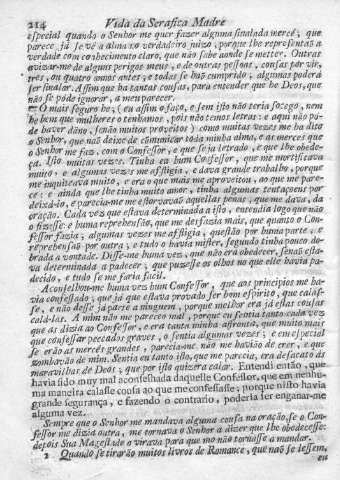 214 Vida da Serafica Madre
especial quando o Senhor me quer fazer alguma sinalada mercê; que
parece já se vê a alma no verdadeiro juizo, porque lhe representaõ a
verdade com conhecimento claro, que naõ sabe aonde se metter. Outras
avizar-me de alguns perigos meus, e de outras pessoas, cousas por vir,
tres, ou quatro annos antes; e todas se haõ cumprido, algumas poderá
ser sinalar. Assim que ha tantas cousas, para entender que he Deos, que
naõ se póde ignorar, a meu parecer.
O mais seguro he, (eu assim o faço, e sem isto naõ teria socego, nem
he bem que mulheres o tenhamos, pois naõ temos letras: e aqui naõ pó-
de haver dãno, senaõ muitos proveitos) como muitas vezes me ha dito
o Senhor, que naõ deixe de communicar toda minha alma, e as mercês que
o Senhor me faz, com o Confessor, e que seja letrado, e que lhe obede-
ça. Isto muitas vezes. Tinha eu hum Confessor, que me mortificava
muito; e algumas vezes me afligia, e dava grande trabalho, porque
me inquietava muito, e era o que mais me aproveitou, ao que me pare-
ce: e ainda que lhe tinha muito amor, tinha algumas tentaçoens por
deixá-lo, e parecia-me me estorvavaõ aquellas penas, que me dava, da
oraçaõ. Cada vez que estava determinada a isto, entendia logo que naõ
o fizesse: e huma reprehensaõ, que me desfazia mais, que quanto o Con-
fessor fazia; algumas vezes me afligia, questaõ por huma parte, e
reprehensaõ por outra; e tudo o havia mister, segundo tinha pouco do-
brada a vontade. Disse-me huma vez, que naõ era obedecer, senaõ esta-
va determinada a padecer; que puzesse os olhos no que elle havia pa-
decido, e tudo se me faria facil.
Aconselhou-me huma vez hum Confessor, que aos principios me ha-
via confessado, que já que estava provado ser bom espirito, que calas-
se, e naõ desse já parte a ninguem, porque melhor era já estas cousas
calá-las. A mim naõ me pareceo mal, porque eu sentia tanto cada vez
que as dizia ao Confessor, e era tanta minha afronta, que muito mais
que confessar peccados graves, o sentia algumas vezes; e em especial
se eraõ as mercês grandes, parecia-me naõ me haviaõ de crer, e que
zombavaõ de mim. Sentia eu tanto isto, que me parecia, era desacato ás
maravilhas de Deos; que por isto quizera calar. Entendi entaõ, que
havia sido muy mal aconselhada daquelle Confessor, que em nenhu-
ma maneira calasse cousa ao que me confessasse; porque nisto havia
grande segurança, e fazendo o contrario, poderia ser enganar-me
alguma vez.
Sempre que o Senhor me mandava alguma cousa na oraçaõ, se o Con-
fessor me dizia outra, me tornava o Senhor a dizer que lhe obedecesse:
depois Sua Magestade o virava para que mo tornasse a mandar.
Quando se tiraraõ muitos livros de Romance, que naõ se lessem,
eu